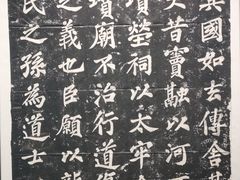 其國如去傳舍其
大昔竇融以河
墳塋祠以太牢
墳廟不治行道傷
之義也臣願以龍
氏之孫為道士